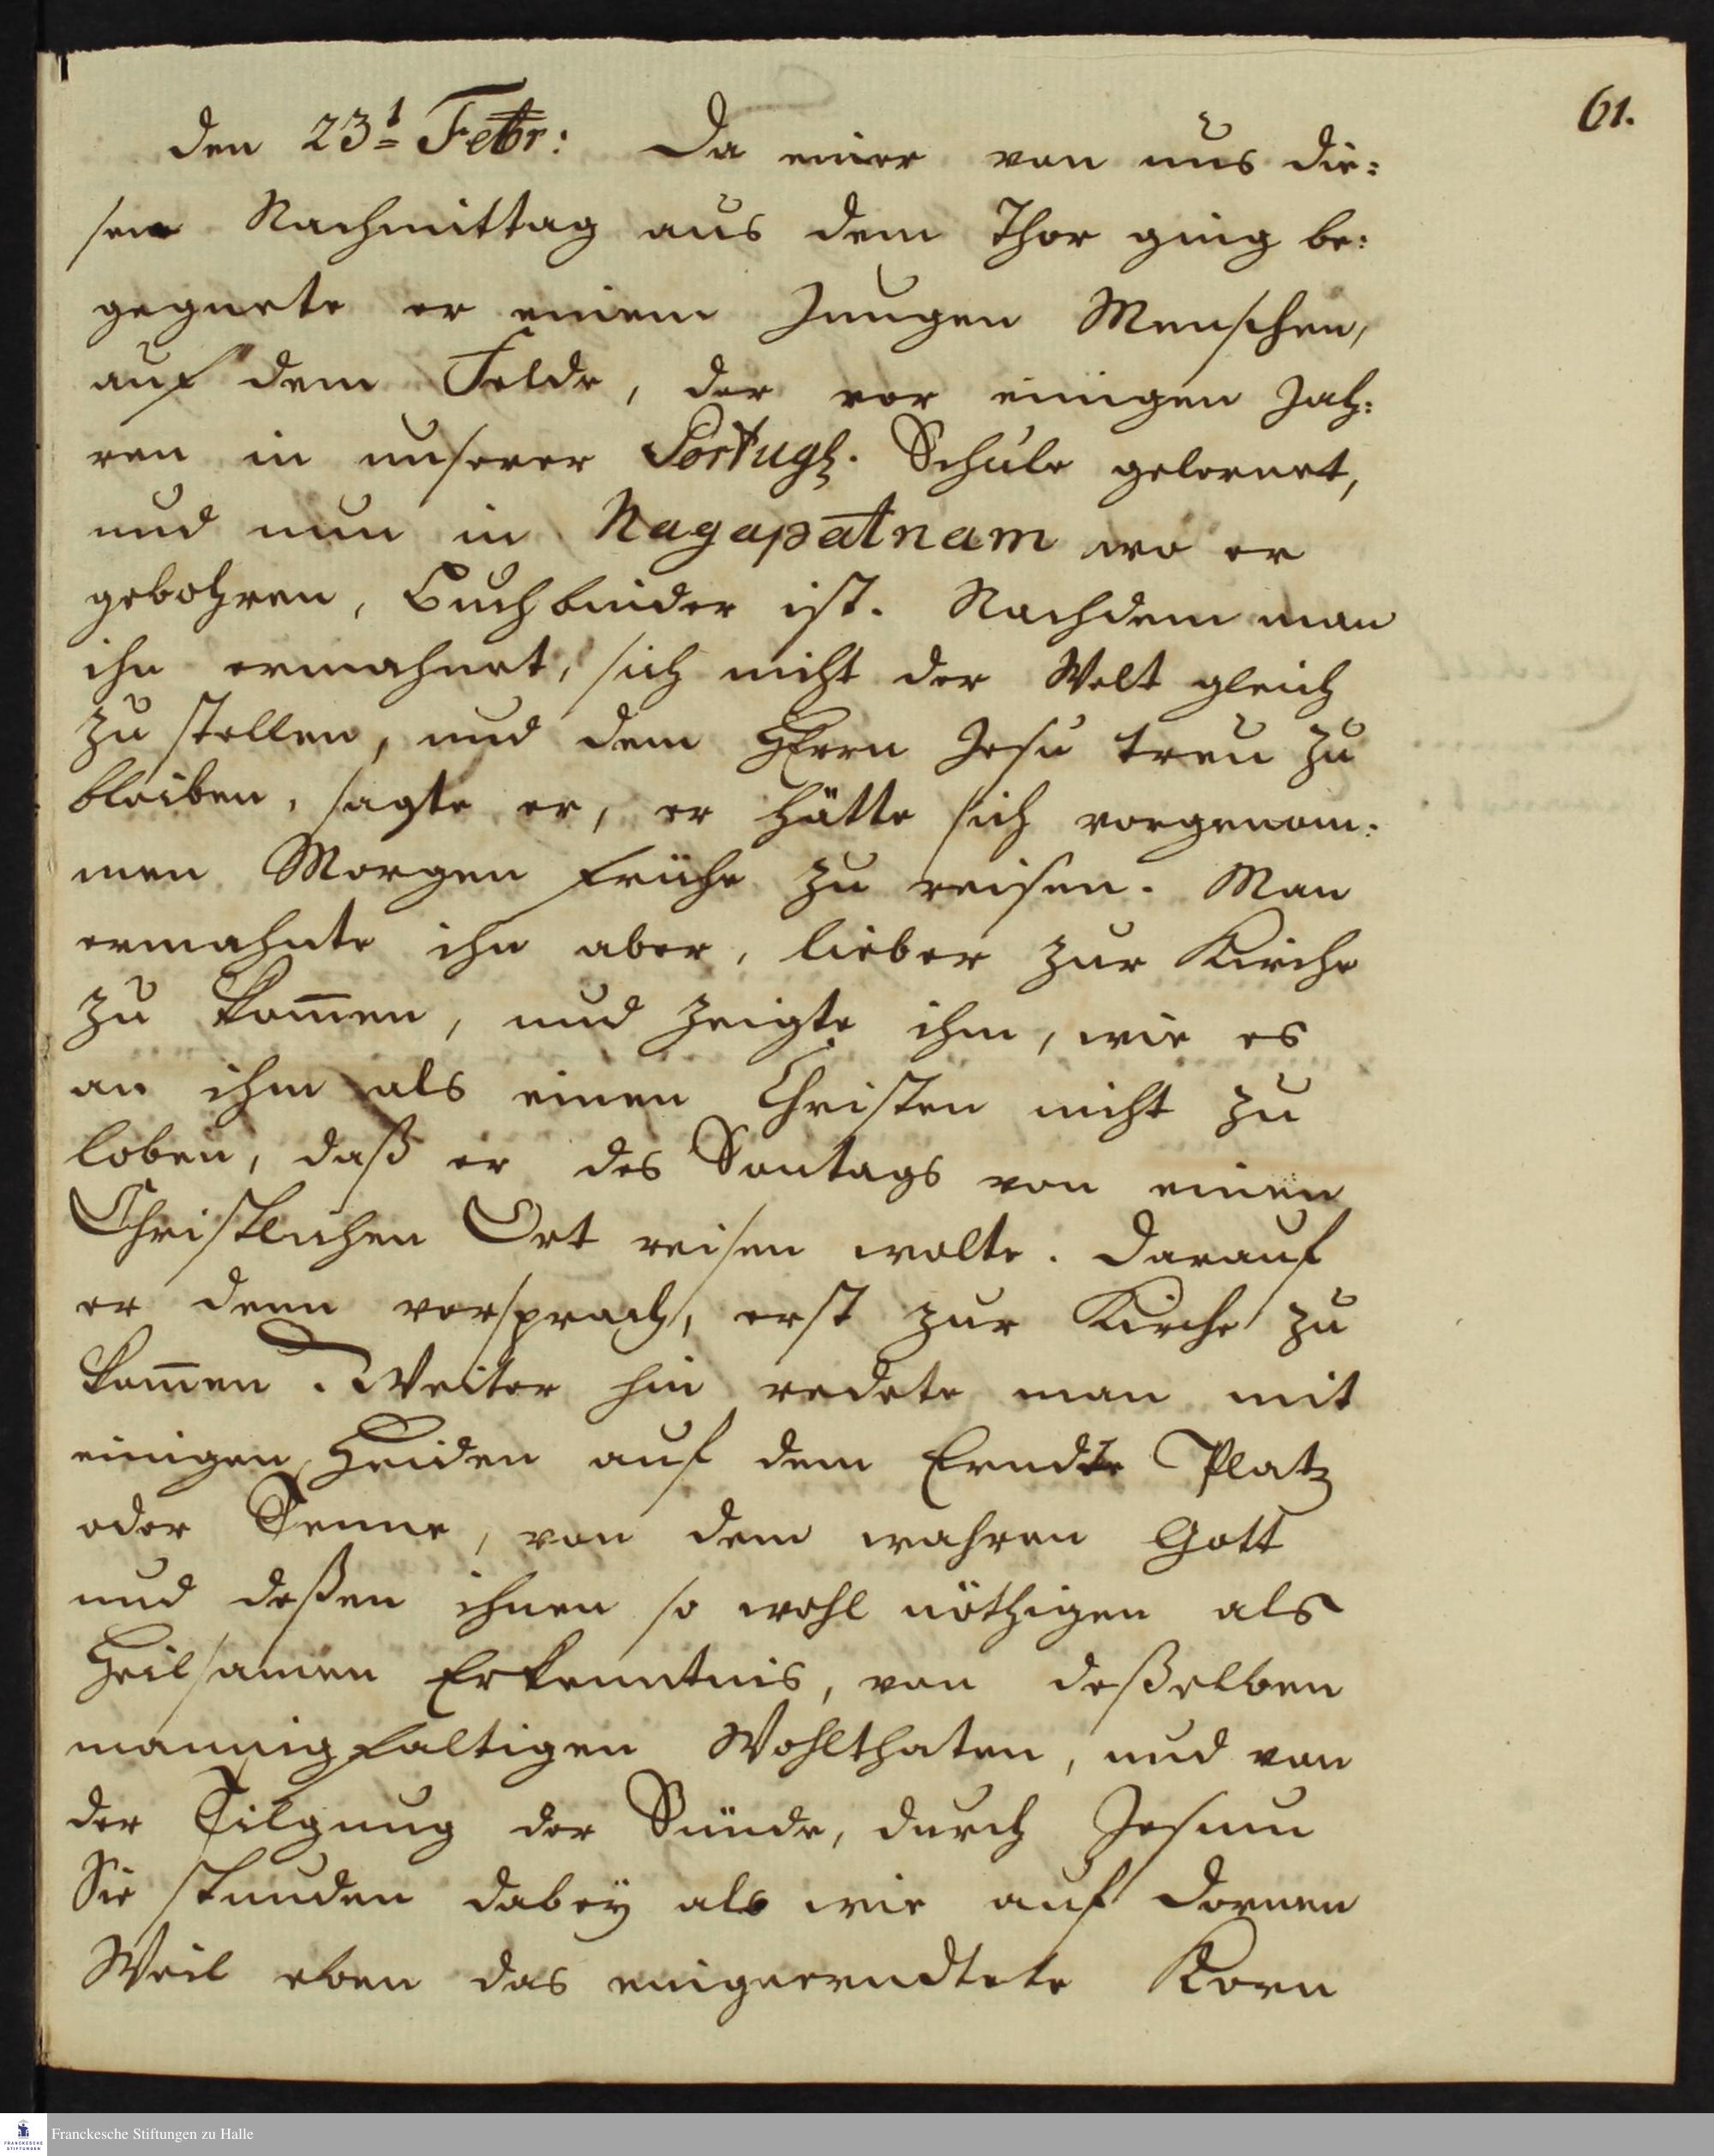 61.
den 23t Febr: Da einer von uns die:
sen Nachmittag aus dem Thor ging be:
gegnete er einem Jungen Menschen,
auf dem Felde, der vor einigen Jah:
ren in unserer Portugh. Schule gelernet,
und nun in Nagapatnam wo er
gebohren, Buchbinder ist. Nachdem man
ihn ermahnet, sich nicht der Welt gleich
zu stellen, und dem HErrn Jesu treu zu
bleiben, sagte er, er hätte sich vorgenom:
men Morgen frühe zu reisen. Man
ermahnte ihn aber, lieber zur Kirche
zu kom̄en, und zeigte ihm, wie es
an ihm als einen Christen nicht zu
loben, daß er des Sontags von einen
Christlichen Ort reisen wolte. Darauf
er denn versprach, erst zur Kirche zu
kom̄en. Weiter hin redete man mit
einigen Heiden auf dem Erndte Platz
oder Tenne, von dem wahren Gott
und deßen ihnen so wohl nöthigen als
Heilsamen Erkenntnis, von deßelben
mannigfaltigen Wohlthaten, und von
der Tilgung der Sünde, durch Jesum
Sie stunden dabey als wie auf Dornen
Weil eben das eingeerndtete Korn
Franckesche Stiftungen zu Halle